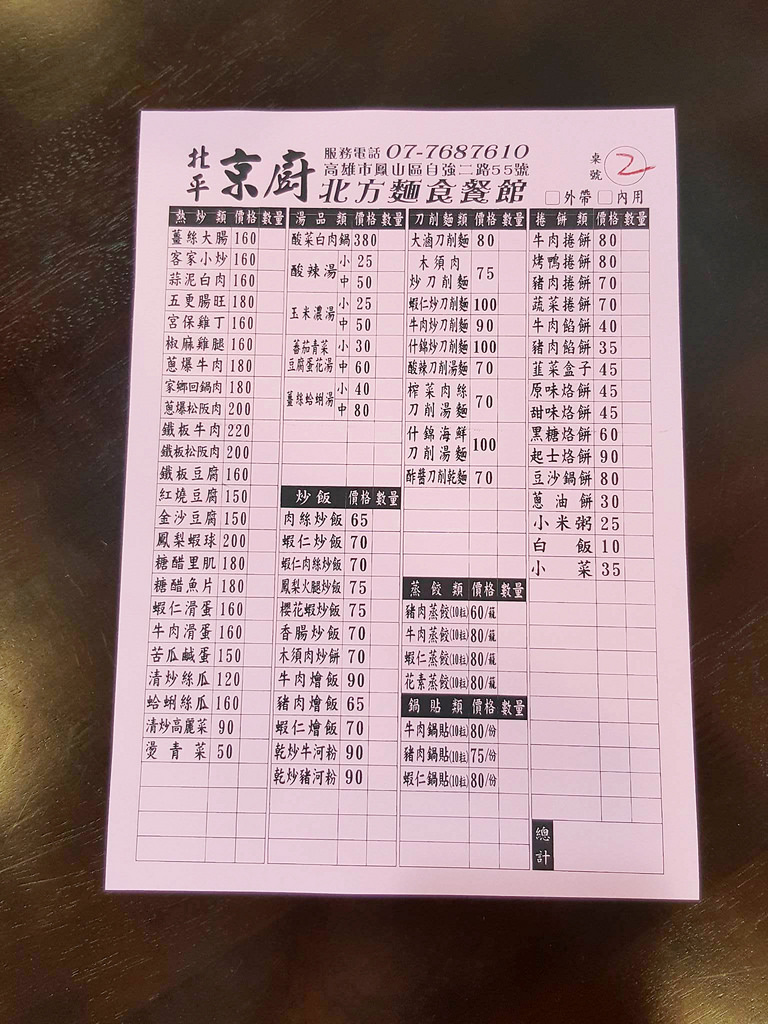 北平 京廚
服務電話 07-7687610
高雄市鳳山區自強二路55號
北方麵食餐館
桌號 2
□外帶 □內用
熱炒類 價格 數量
薑絲大腸 160
客家小炒 160
蒜泥白肉 160
五更腸旺 180
宮保雞丁 160
椒麻雞腿 160
蔥爆牛肉 180
家鄉回鍋肉 180
蔥爆松阪肉 200
鐵板牛肉 220
鐵板松阪肉 200
鐵板豆腐 160
紅燒豆腐 150
金沙豆腐 150
鳳梨蝦球 200
糖醋里肌 180
糖醋魚片 180
蝦仁滑蛋 160
牛肉滑蛋 160
苦瓜鹹蛋 150
清炒絲瓜 120
蛤蜊絲瓜 160
清炒高麗菜 90
燙青菜 50
湯品類 價格 數量
酸菜白肉鍋 380
酸辣湯 小 25
中 50
玉米濃湯 小 25
中 50
蕃茄青菜 小 30
豆腐蛋花湯 中 60
薑絲蛤蜊湯 小 40
中 80
炒飯 價格 數量
肉絲炒飯 65
蝦仁炒飯 70
蝦仁肉絲炒飯 70
鳳梨火腿炒飯 75
櫻花蝦炒飯 75
香腸炒飯 70
木須肉炒餅 70
牛肉燴飯 90
豬肉燴飯 65
蝦仁燴飯 70
乾炒牛河粉 90
乾炒豬河粉 90
刀削麵類 價格 數量
大滷刀削麵 80
木須肉
炒刀削麵 75
蝦仁炒刀削麵 100
牛肉炒刀削麵 90
什錦炒刀削麵 100
酸辣刀削湯麵 70
榨菜肉絲
刀削湯麵 70
什錦海鮮
刀削湯麵 100
酢醬刀削乾麵 70
蒸餃類 價格 數量
豬肉蒸餃(10粒) 60/籠
牛肉蒸餃(10粒) 80/籠
蝦仁蒸餃(10粒) 80/籠
花素蒸餃(10粒) 80/籠
鍋貼類 價格 數量
牛肉鍋貼(10粒) 80/份
豬肉鍋貼(10粒) 75/份
蝦仁鍋貼(10粒) 80/份
捲餅類 價格 數量
牛肉捲餅 80
烤鴨捲餅 80
豬肉捲餅 70
蔬菜捲餅 70
牛肉餡餅 40
豬肉餡餅 35
韭菜盒子 45
原味烙餅 45
甜味烙餅 45
黑糖烙餅 60
起士烙餅 90
豆沙鍋餅 80
蔥油餅 30
小米粥 25
白飯 10
小菜 35
總計